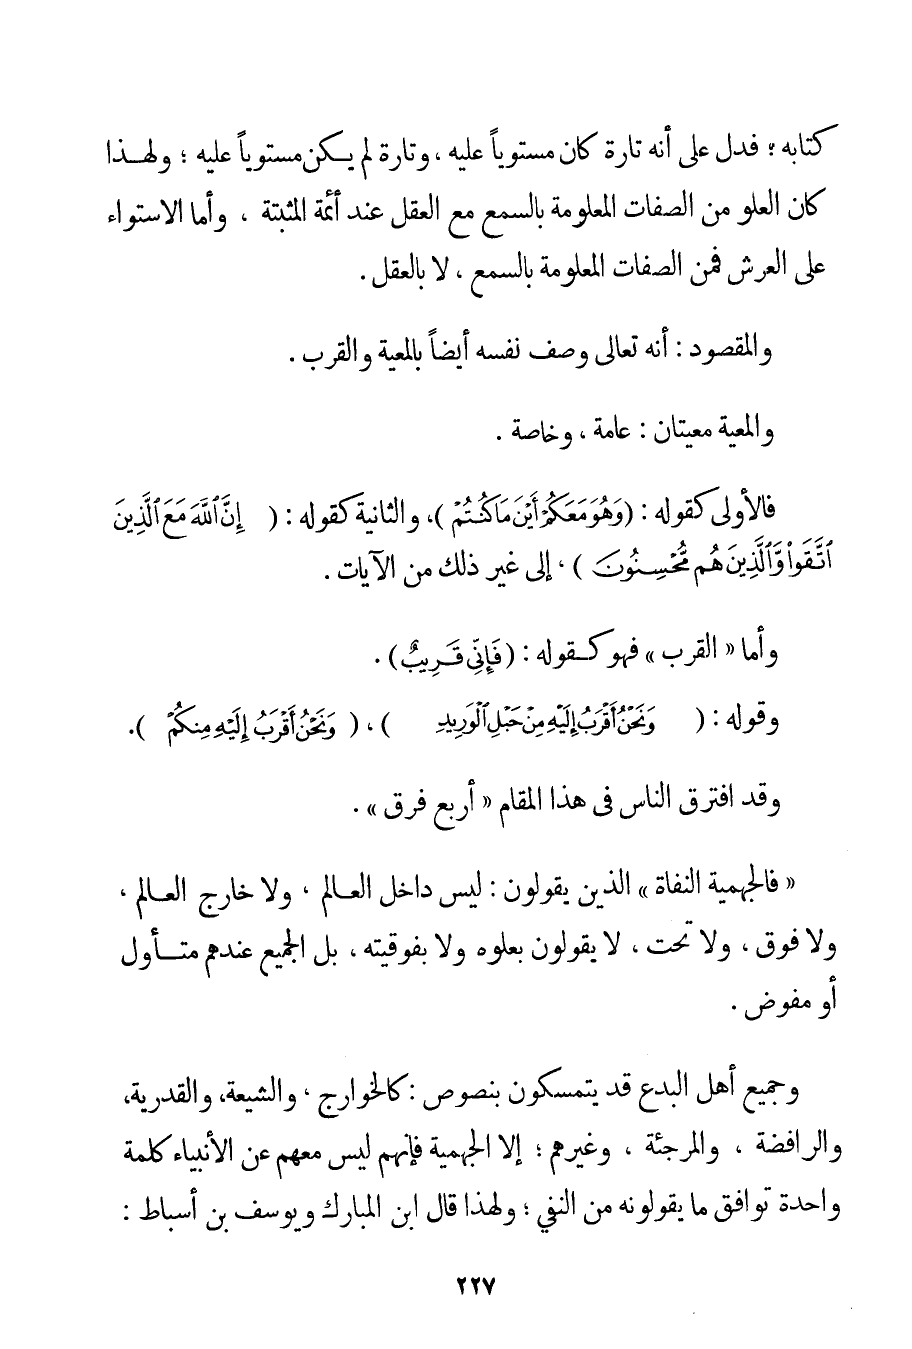 كتابه ؛ فدل على أنه تارة كان مستوياً عليه ، وتارة لم يكن مستوياً عليه ؛ ولهـذا
كان العلو من الصفات المعلومة بالسمع مع العقل عند أئمة المثبتة ، وأما الاستواء
على العرش فمن الصفات المعلومة بالسمع ، لا بالعقل .
والمقصود : أنه تعالى وصف نفسه أيضاً بالمعية والقرب .
والمعية معيتان : عامة ، وخاصة .
فالأولى كقوله : (وَهُوَ مَعَكُمْ أَيْنَ مَا كُنتُمْ )، والثانية كقوله : ( إِنَّ ٱللَّهَ مَعَ ٱلَّذِينَ
ٱتَّقَوا۟ وَّٱلَّذِينَ هُم مُّحْسِنُونَ ) ، إلى غير ذلك من الآيات .
وأما « القرب » فهو كـقوله : (فَإِنِّي قَرِيبٌ) .
وقوله : ( وَنَحْنُ أَقْرَبُ إِلَيْهِ مِنْ حَبْلِ ٱلْوَرِيدِ ) ، ( وَنَحْنُ أَقْرَبُ إِلَيْهِ مِنكُمْ ).
وقد افترق الناس في هذا المقام « أربع فرق » .
« فالجهمية النفاة » الذين يقولون : ليس داخل العـالم ، ولا خارج العـالم ،
ولا فوق ، ولا تحت ، لا يقولون بعلوه ولا بفوقيته ، بل الجميع عندهم متـأول
أو مفوض .
وجميع أهل البدع قد يتمسكون بنصوص : كالخوارج ، والشيعة، والقدرية،
والرافضة ، والمرجئة ، وغيرهم ؛ إلا الجهمية فإنهم ليس معهم عن الأنبياء كلمة
واحدة توافق ما يقولونه من النفي ؛ ولهذا قال ابن المبارك ويوسف بن أسباط :
٢٢٧